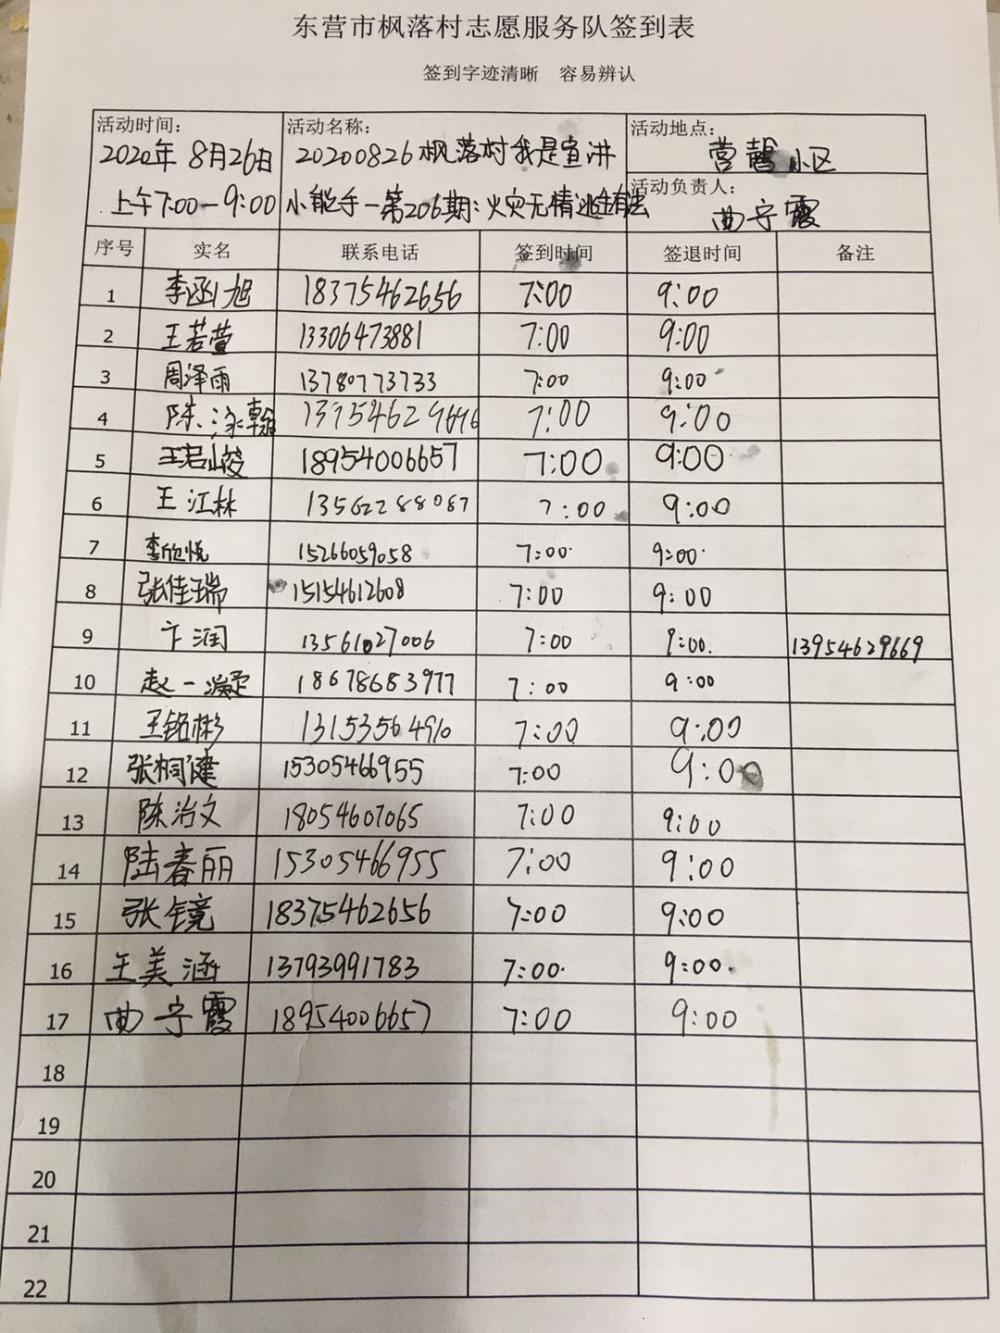 东营市枫落村志愿服务队签到表
签到字迹清晰 容易辨认
活动时间： 活动名称： 活动地点：
2020年8月26日 20200826枫落村我是宣讲 营 小区
上午7:00—9:00 小能手—第206期：火灾无情逃 有 活动负责人：
曲宁霞
序号 实名 联系电话 签到时间 签退时间 备注
1 李函旭 18375462656 7:00 9:00
2 王若萱 13306473881 7:00 9:00
3 周泽雨 13780773733 7:00 9:00
4 陈泳翰 7:00 9:00
5 王若峻 18954006657 7:00 9:00
6 王江林 13562288087 7:00 9:00
7 李欣悦 15266059058 7:00 9:00
8 张佳瑞 15154612608 7:00 9:00
9 卞润 13561027006 7:00 9:00. 13954629669
10 赵一凝 18678683977 7:00 9:00
11 王铭彬 13153564910 7:00 9:00
12 张桐健 15305466955 7:00 9:00
13 陈治文 18054607065 7:00 9:00
14 陆春丽 15305466955 7:00 9:00
15 张镜 18375462656 7:00 9:00
16 王美涵 13793991783 7:00. 9:00.
17 曲宁霞 18954006657 7:00 9:00
18
19
20
21
22